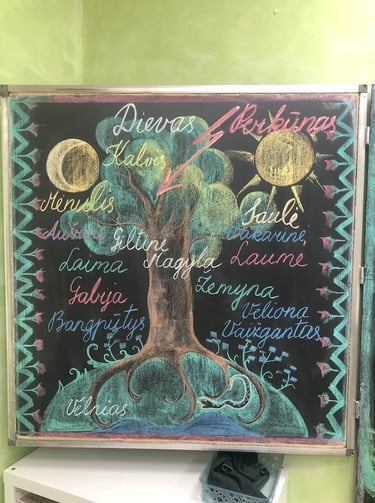 Dievas Perkūnas
Kalvis
Mėnulis Saulė
Aušrinė Giltinė Vakarinė
Laima Magyla Laumė
Gabija Žemyna
Bangpūtys Veliona
Vaižgantas
Velnias